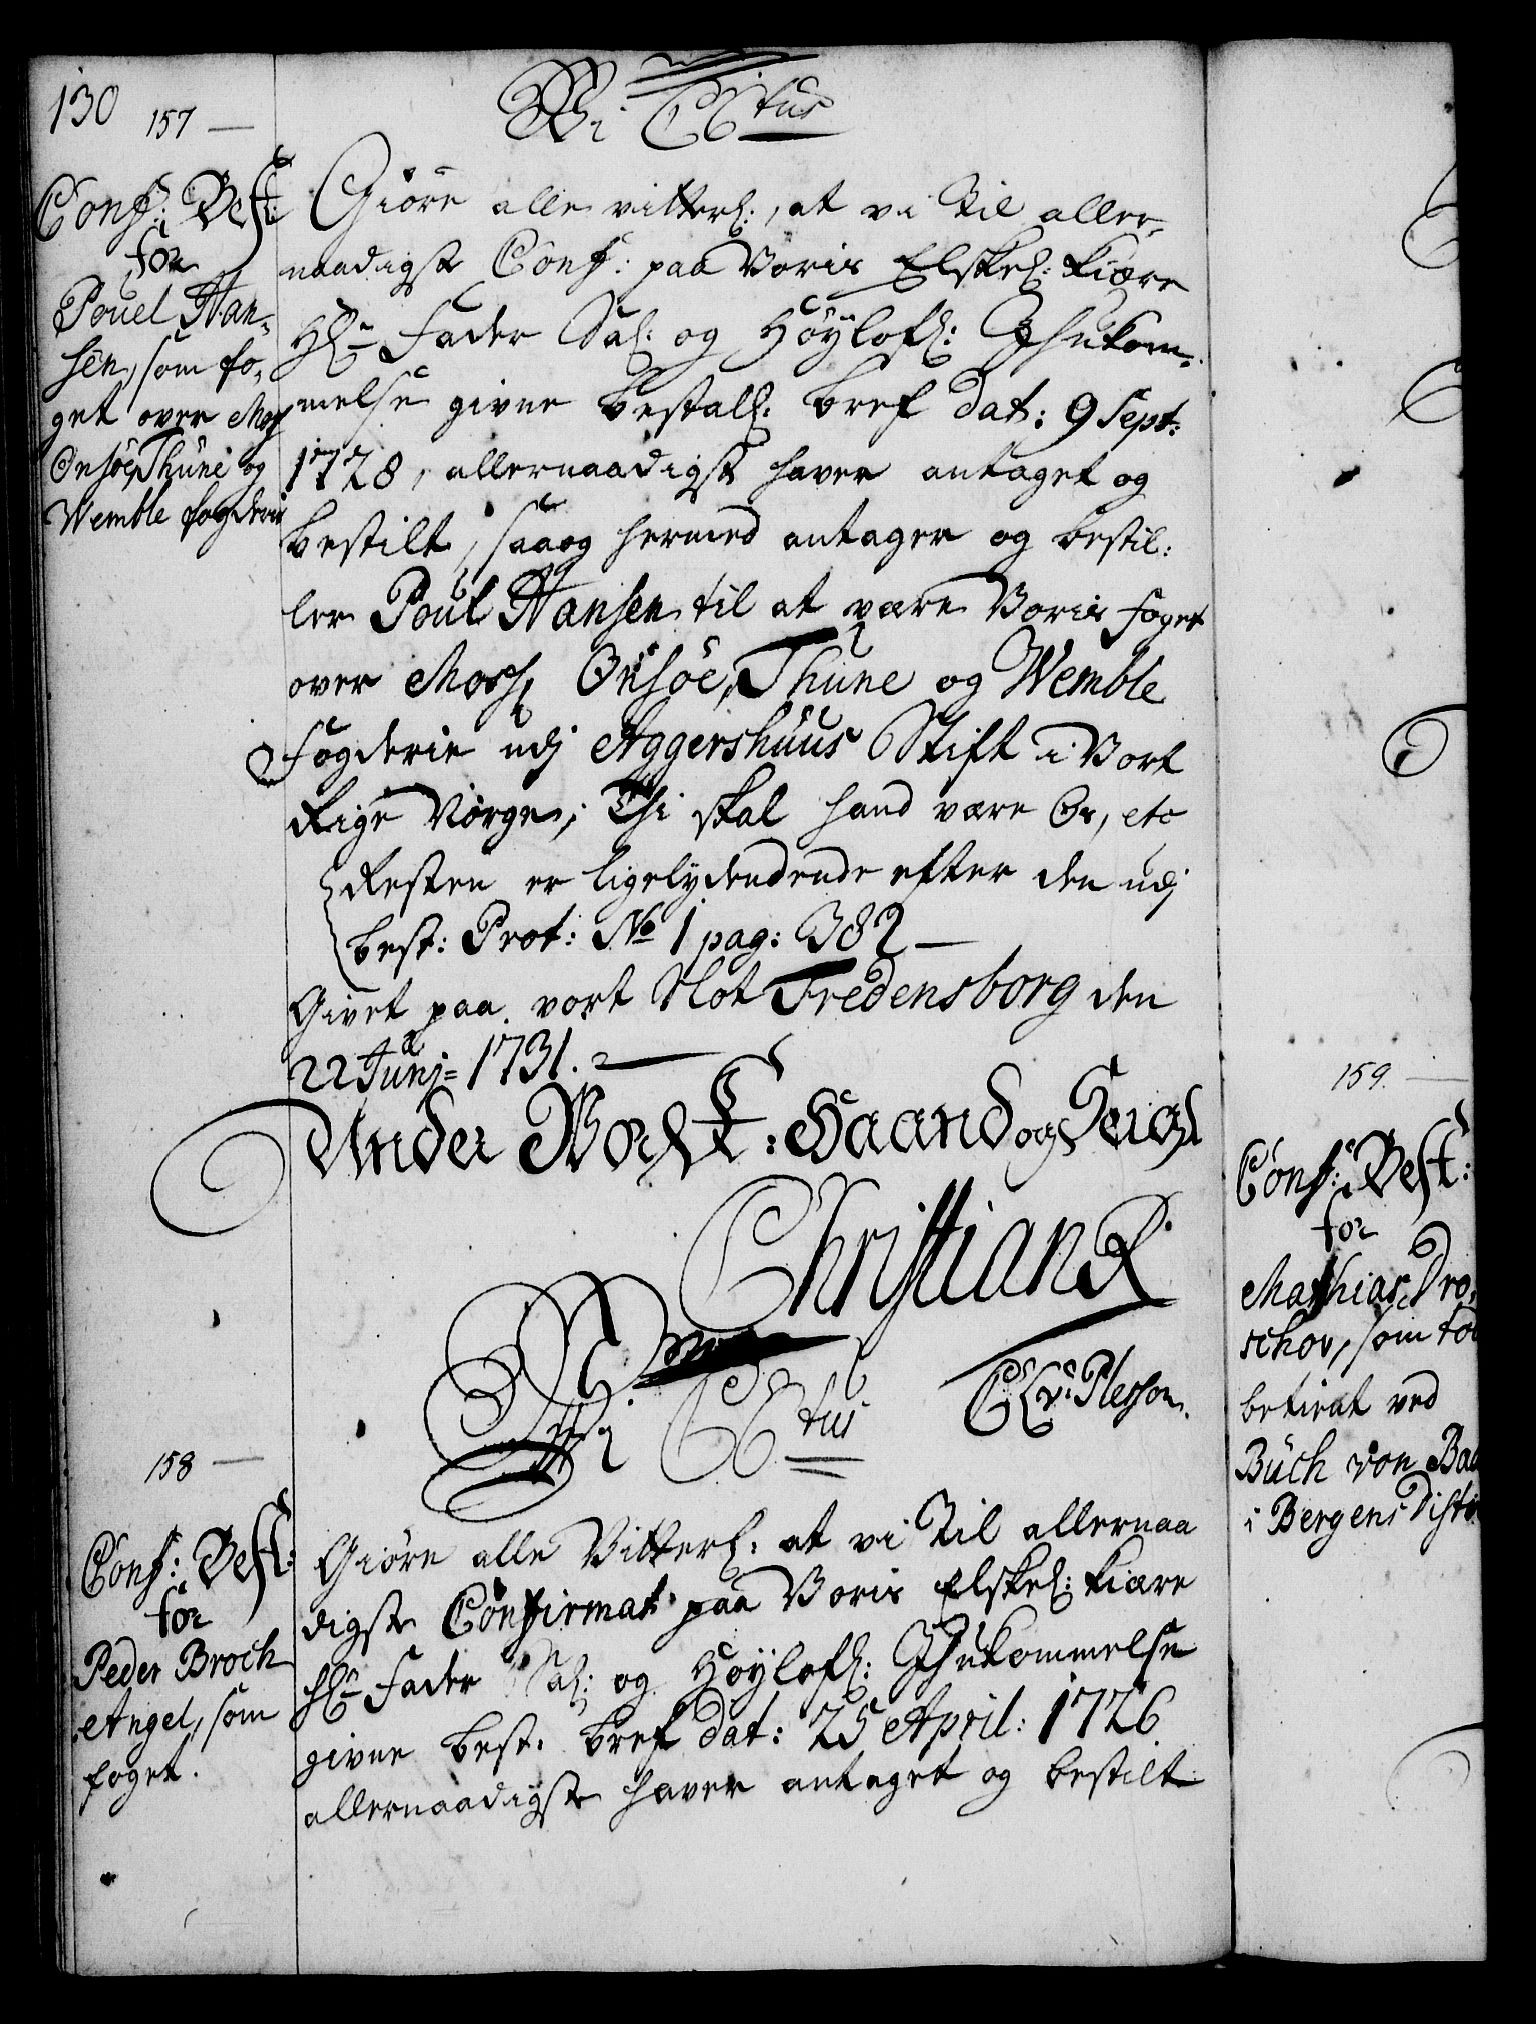 130
157
Conf: Best:
for
Pouel Han-
sen, som fo-
get over Moss
Onsöe, Thune og
Wemble fogderie
Wi CC6tus
Giöre alle vitterl:, at vi Til aller-
naadigste Conf: paa Voris Elskel: kiære
Hr Fader Sal: og Höylofl: Ihukom-
melse givne bestall: bref dat: 9 Sept:
1728, allernaadigst haver antaget og
bestilt, saa og hermed antager og bestil-
ler Poul Hansen til at være Voris foget
over Moss, Onsöe, Thune og Wemble
Fogderie udj Aggershuus Stift i Vort
Rige Norge; Thi skal hand være Os, etc
Resten er ligelydendende efter den udj
best: Prot: No 1 pag: 382
Givet paa vort Slot Fredensborg den
22 Junj= 1731.
Under Vor K: Haand og Seigl
Christian R.
CAv: Plessen.
158
Conf: Best:
for
Peder Broch
Angel, som
foget.
Wi CC6tus
Giöre alle Vitterl: at vi Til allernaa
digste Confirmat: paa Voris Elskel: kiære
Hr Fader Sal: og Höylofl: Ihukommelse
givne best: bref dat: 25 April: 1726
allernaadigste haver antaget og bestilt
159.
Conf: Best:
for
Mathias Dro-
schov, som
betient ved
Buch von
i Bergens